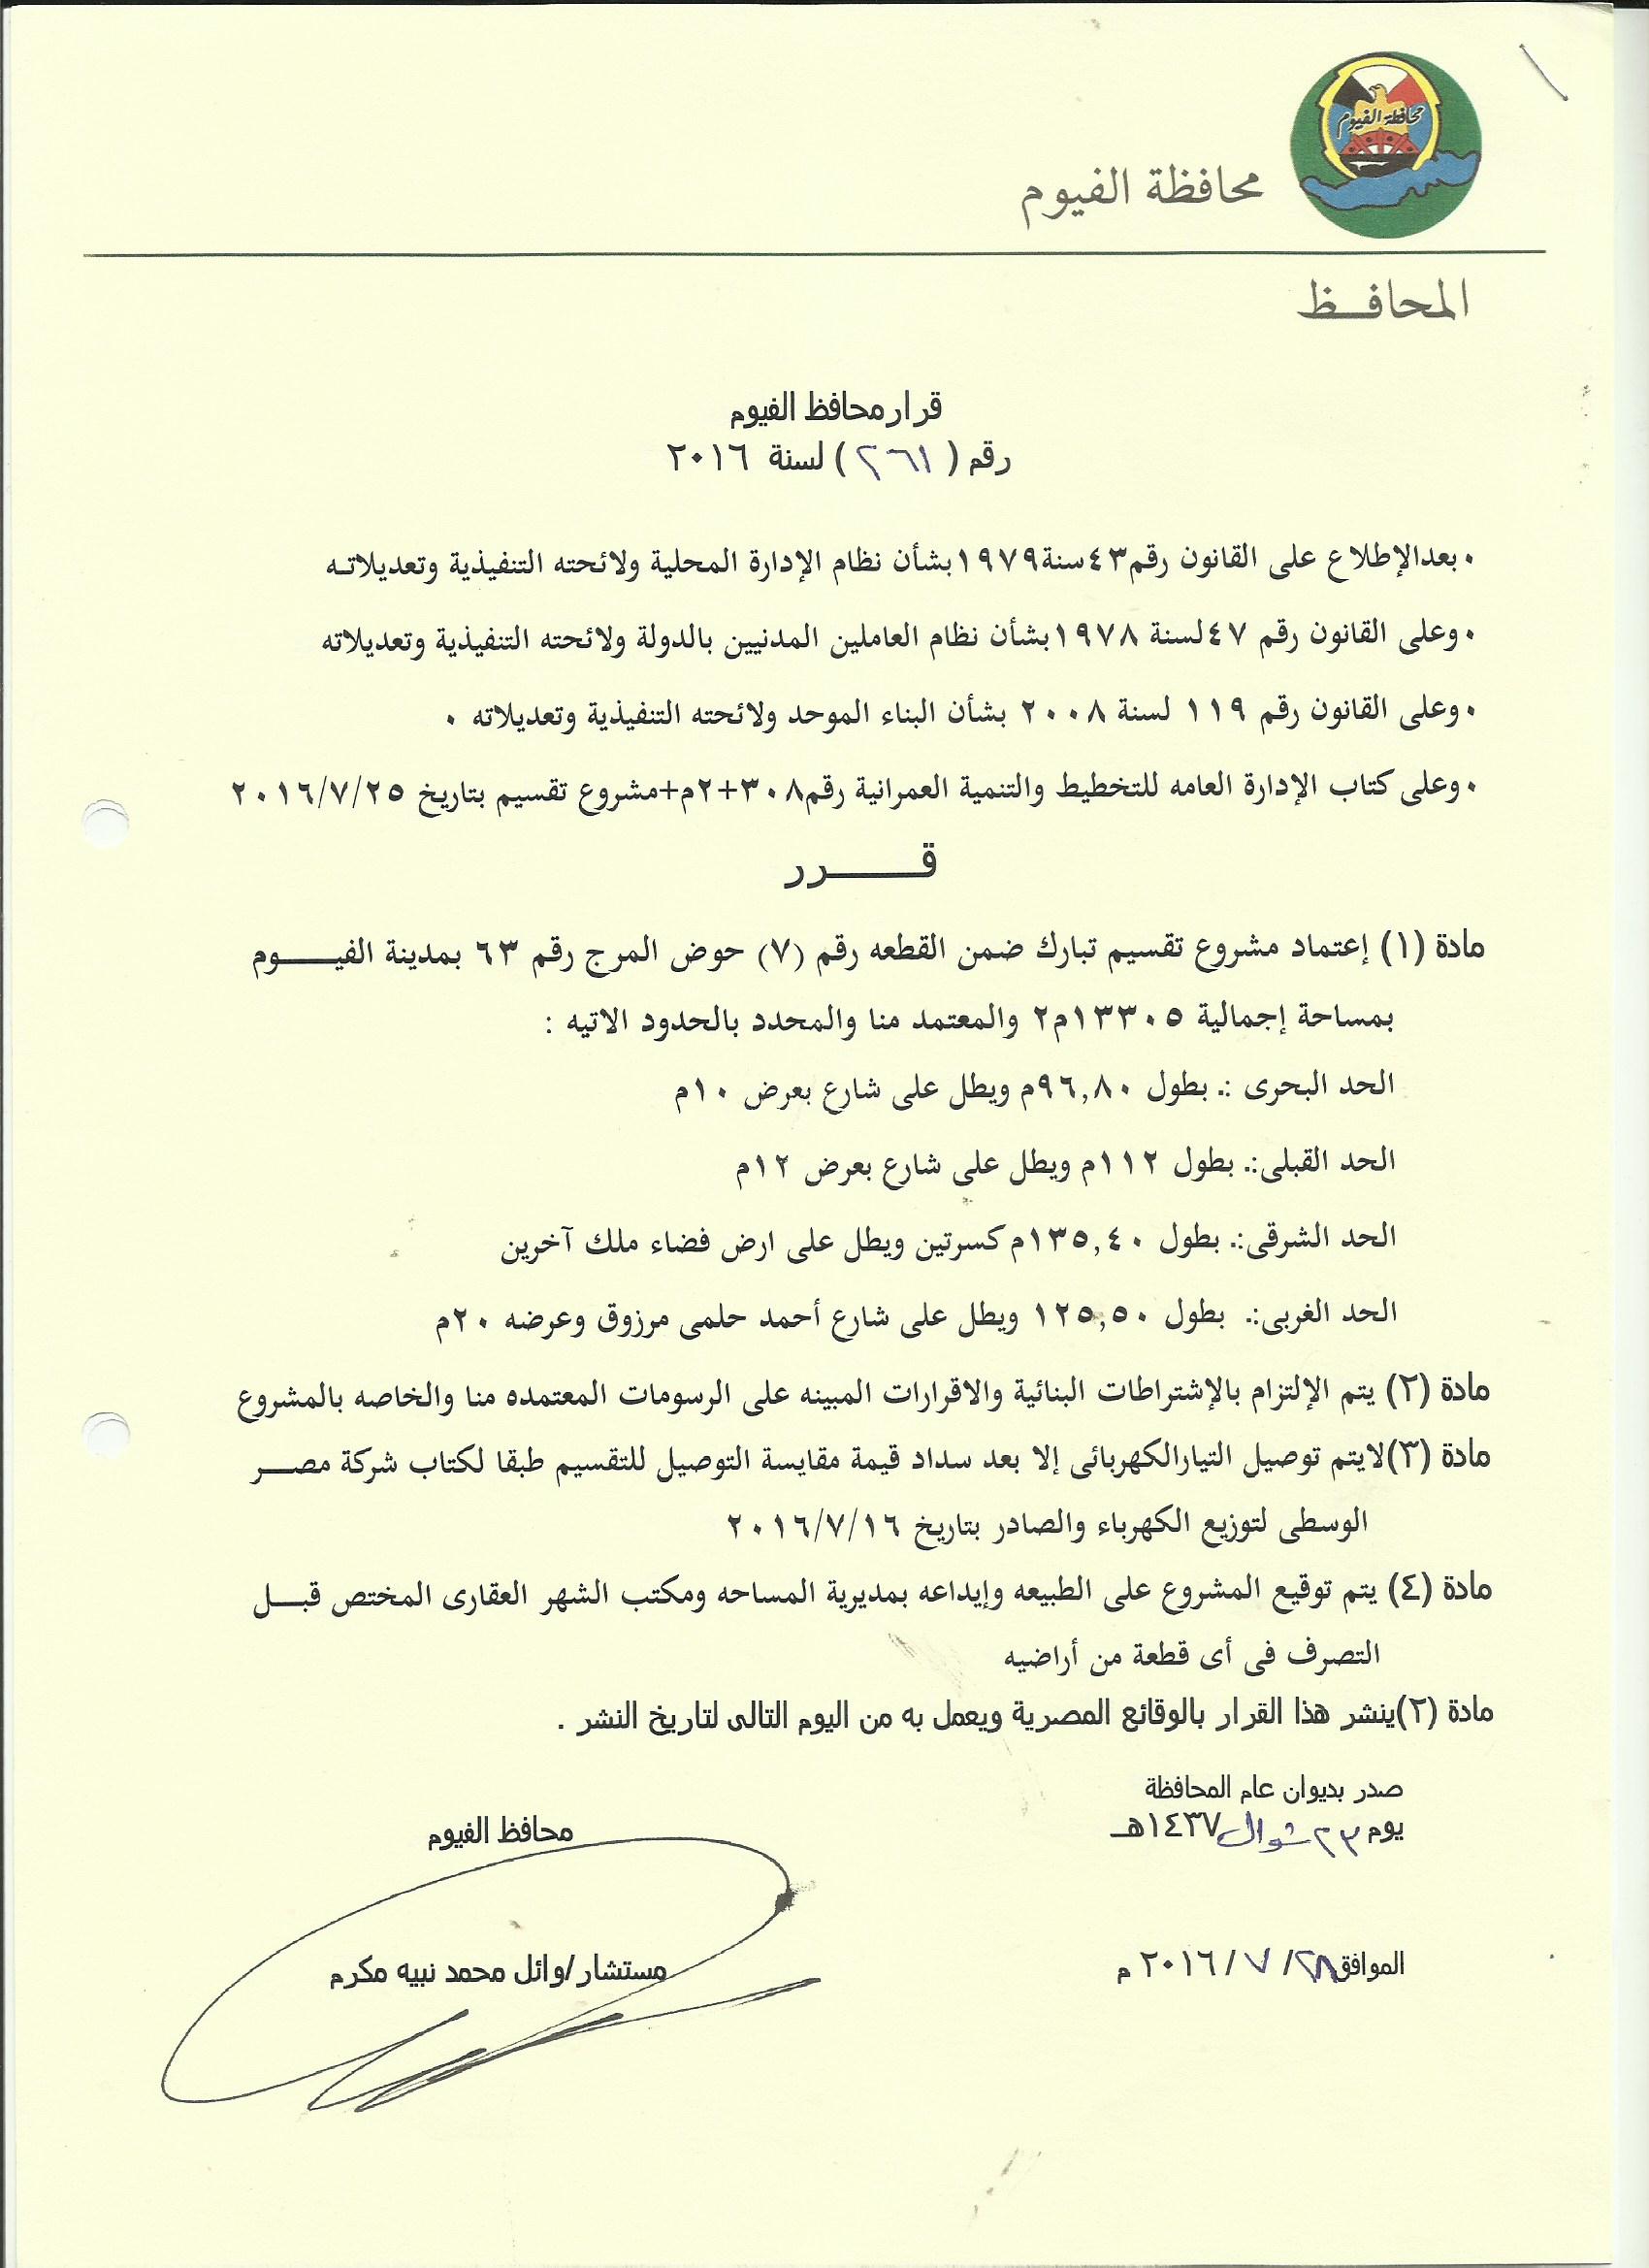 محافظة الفيوم
محافظة الفيوم
المحافــظ
قرار محافظ الفيوم
رقم ( ٢٦١ ) لسنة ٢٠١٦
• بعدالإطلاع على القانون رقم٤٣سنة١٩٧٩بشأن نظام الإدارة المحلية ولائحته التنفيذية وتعديلاتـه
• وعلى القانون رقم ٤٧لسنة ١٩٧٨بشأن نظام العاملين المدنيين بالدولة ولائحته التنفيذية وتعديلاته
• وعلى القانون رقم ١١٩ لسنة ٢٠٠٨ بشأن البناء الموحد ولائحته التنفيذية وتعديلاته ٠
• وعلى كتاب الإدارة العامه للتخطيط والتنمية العمرانية رقم٣٠٨+٢م+مشروع تقسيم بتاريخ ٢٠١٦/٧/٢٥
قـــــــرر
مادة (١) إعتماد مشروع تقسيم تبارك ضمن القطعه رقم (٧) حوض المرج رقم ٦٣ بمدينة الفيـــوم
بمساحة إجمالية ١٣٣٠٥م٢ والمعتمد منا والمحدد بالحدود الاتيه :
الحد البحرى :. بطول ٩٦,٨٠م ويطل على شارع بعرض ١٠م
الحد القبلى:. بطول ١١٢م ويطل على شارع بعرض ١٢م
الحد الشرقى:. بطول ١٣٥,٤٠م كسرتين ويطل على ارض فضاء ملك آخرين
الحد الغربى:. بطول ١٢٥,٥٠ ويطل على شارع أحمد حلمى مرزوق وعرضه ٢٠م
مادة (٢) يتم الإلتزام بالإشتراطات البنائية والاقرارات المبينه على الرسومات المعتمده منا والخاصه بالمشروع
مادة (٣)لايتم توصيل التيارالكهربائى إلا بعد سداد قيمة مقايسة التوصيل للتقسيم طبقا لكتاب شركة مصـــر
الوسطى لتوزيع الكهرباء والصادر بتاريخ ٢٠١٦/٧/١٦
مادة (٤) يتم توقيع المشروع على الطبيعه وإيداعه بمديرية المساحه ومكتب الشهر العقارى المختص قبـــل
التصرف فى أى قطعة من أراضيه
مادة (٢)ينشر هذا القرار بالوقائع المصرية ويعمل به من اليوم التالى لتاريخ النشر .
صدر بديوان عام المحافظة
يوم ٢٣ شوال ١٤٣٧هـ
محافظ الفيوم
الموافق٢٨/ ٧ / ٢٠١٦ م
مستشار/وائل محمد نبيه مكرم